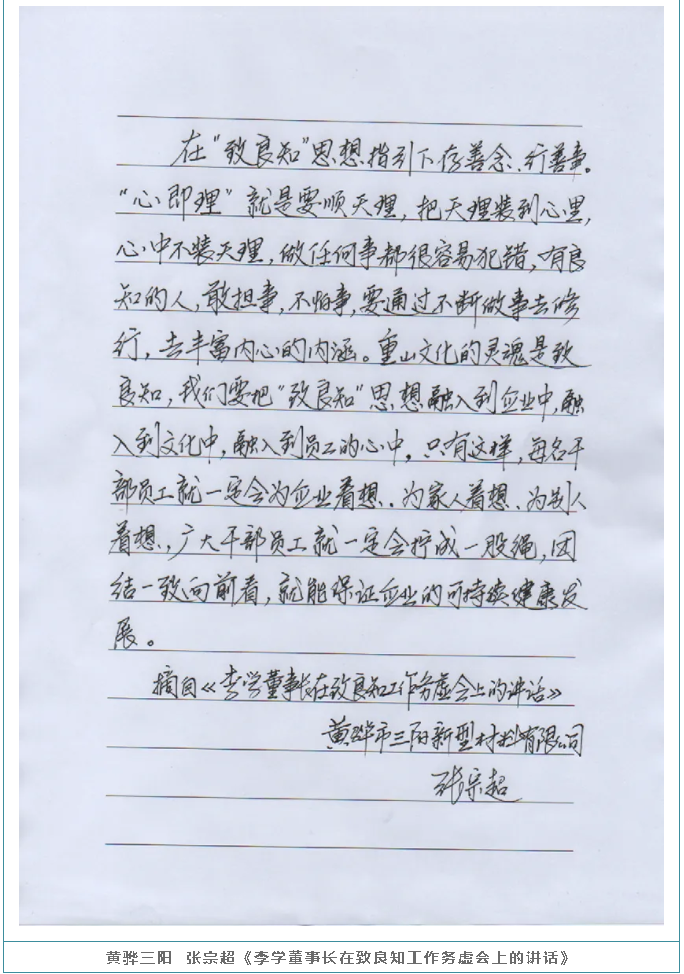 在“致良知”思想指引下存善念、行善事。
“心即理”就是要顺天理，把天理装到心里，
心中不装天理，做任何事都很容易犯错，有良
知的人，敢担事，不怕事，要通过不断做事去修
行，去丰富内心的内涵。重山文化的灵魂是致
良知，我们要把“致良知”思想融入到企业中，融
入到文化中，融入到员工的心中。只有这样，每名干
部员工就一定会为企业着想、为家人着想、为别人
着想，广大干部员工就一定会拧成一股绳，团
结一致向前看，就能保证企业的可持续健康发
展。
摘自《李学董事长在致良知工作务虚会上的讲话》
黄骅市三阳新型材料有限公司
张宗超
黄骅三阳 张宗超《李学董事长在致良知工作务虚会上的讲话》